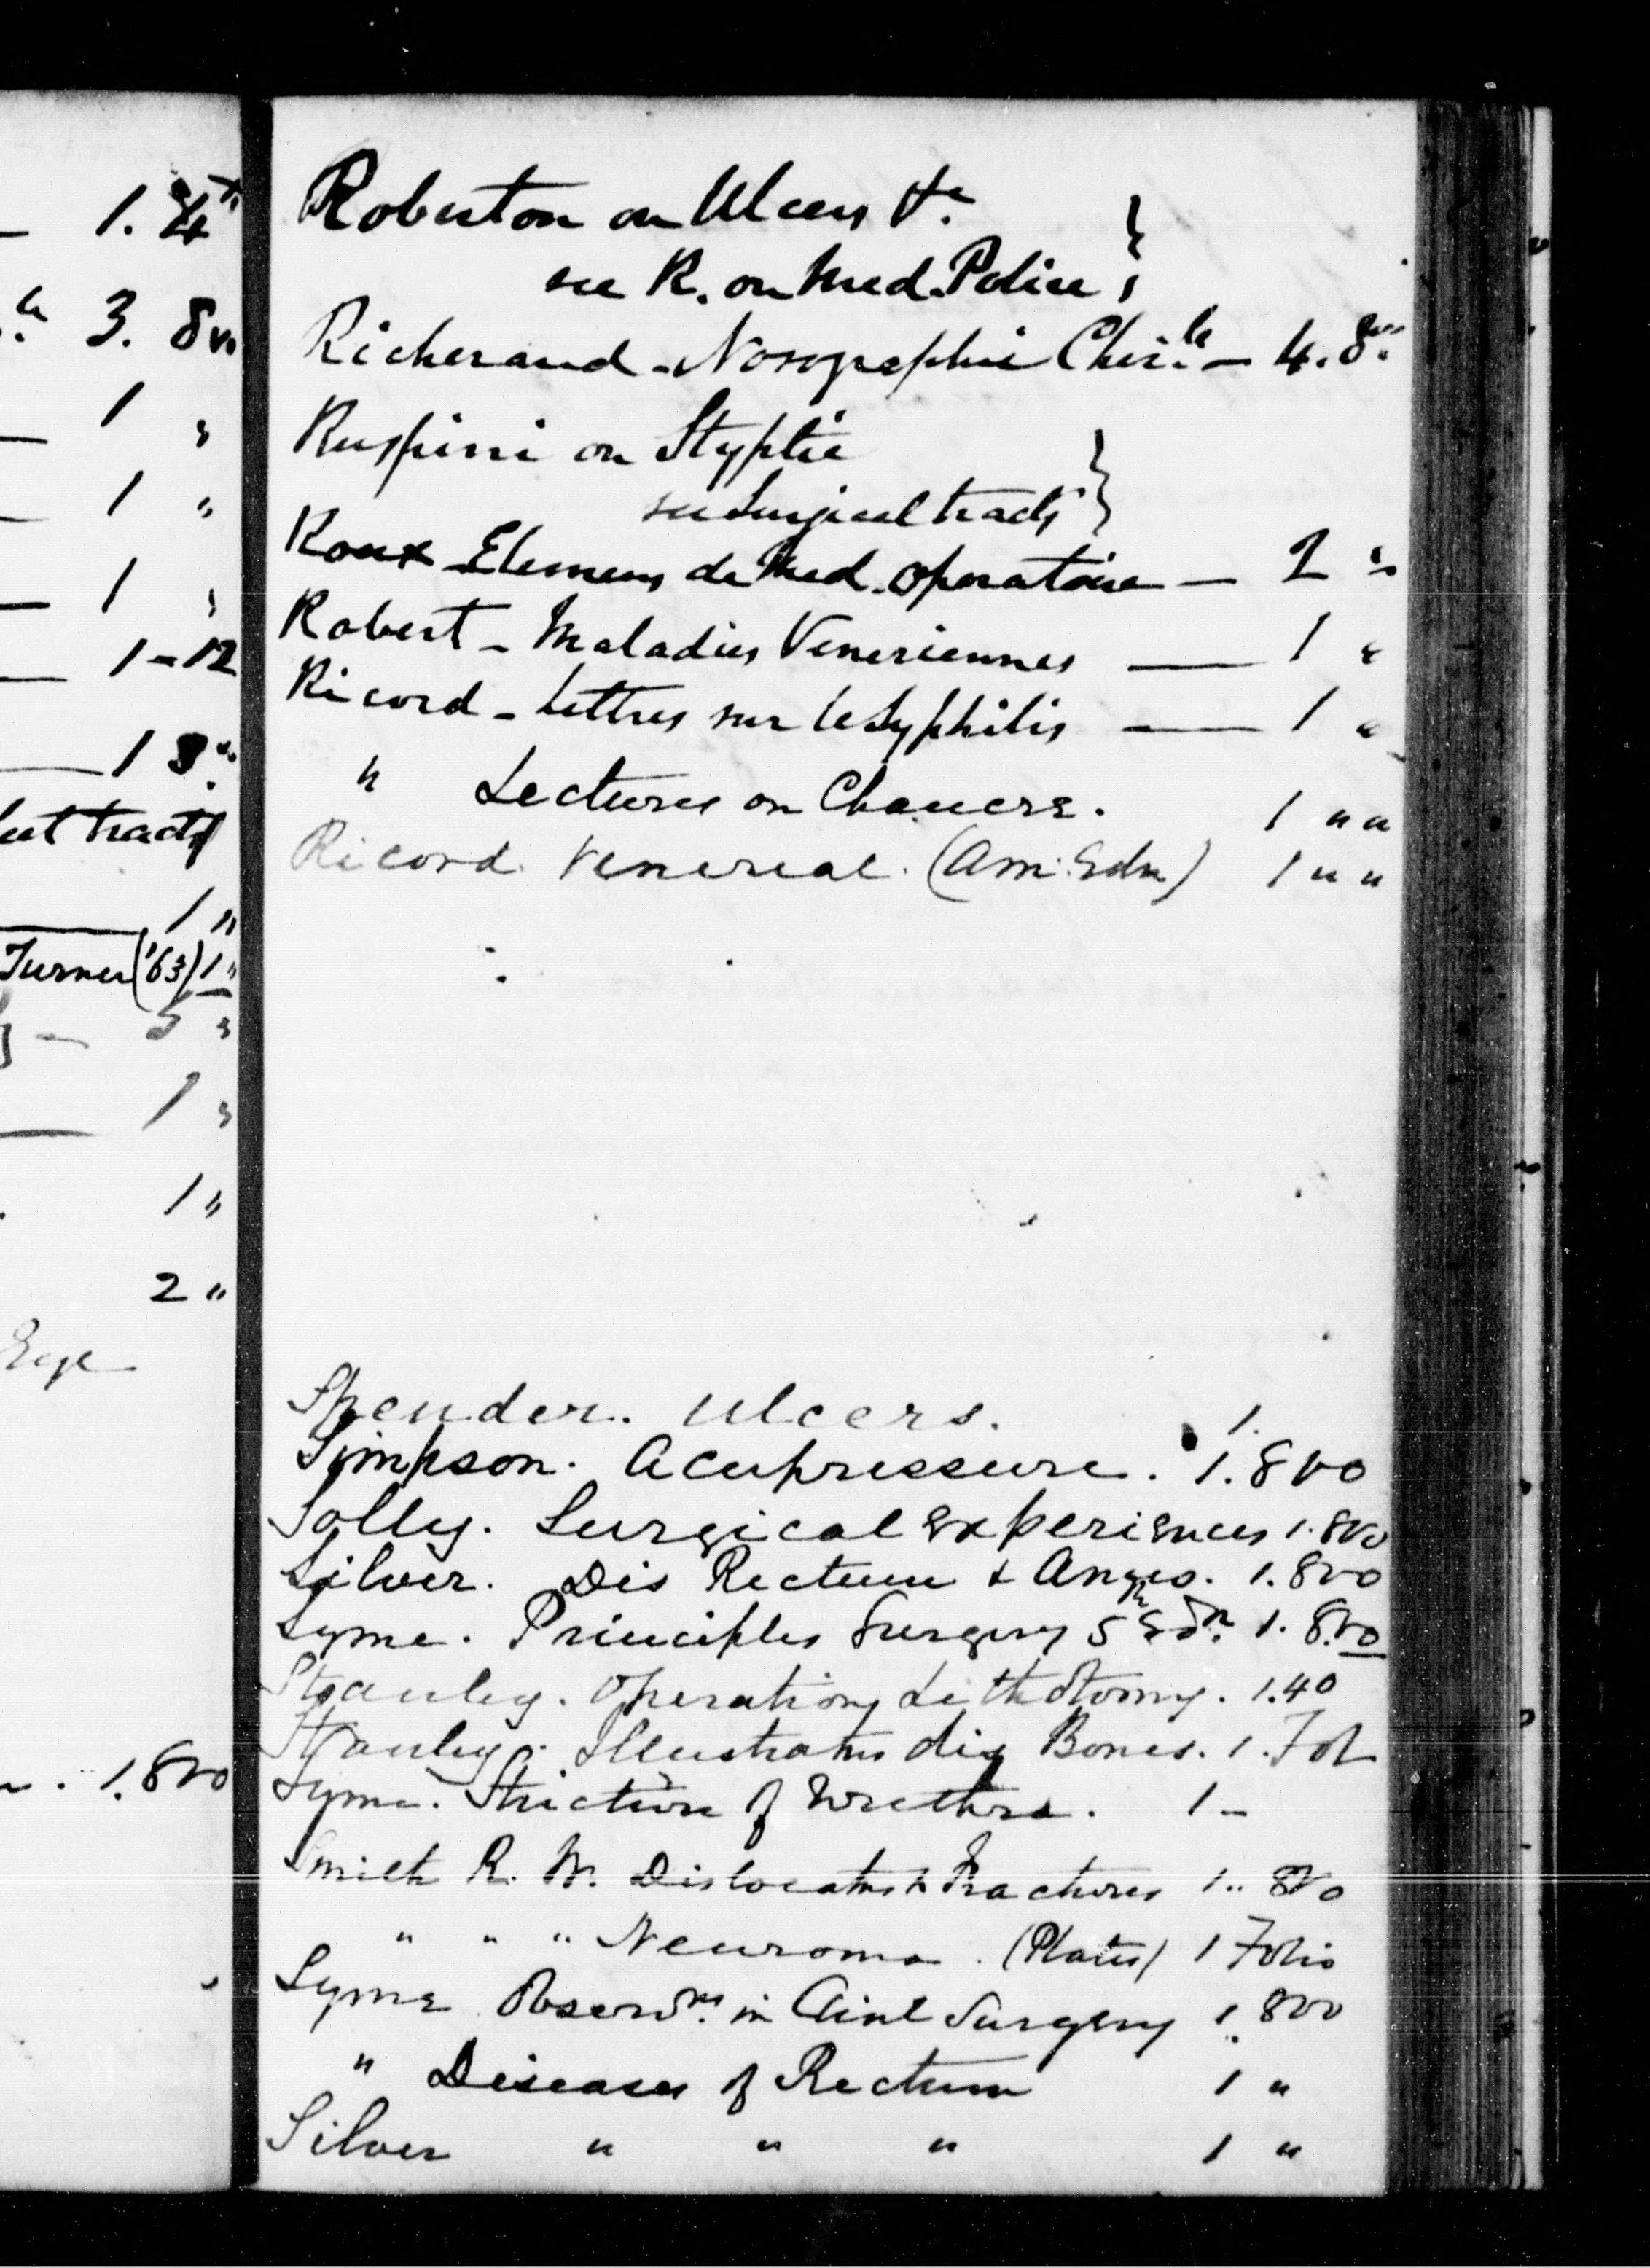 1. 4to
3. 8vo
1 "
1 "
1 "
1-12
1 8vo
tracts
1 "
Turner ('63) 1 "
5 "
1 "
1 "
2 "
Eye
1. 8vo
Roberton on Ulcers &c
see R. on Med. Police }
Richerand - Nosographie Chir.le — 4. 8vo
Ruspini on Styptic
see Surgical tracts }
Roux - Elemens de Med. Operatoire — 2 "
Robert - Maladies Veneriennes — 1 "
Ricord - Lettres sur le Syphilis — 1 "
" Lectures on Chancre. 1 " "
Ricord. Venereal. (Am: Edn) 1 " "
Spender. Ulcers. 1.
Simpson. Acupressure. 1. 8vo
Solly. Surgical Experiences 1. 8vo
Silver. Dis Rectum & Anus. 1. 8vo
Syme. Principles Surgery 5th Edn. 1. 8vo
Stanley. Operations Lithotomy. 1. 4o
Stanley. Illustratns dis Bones. 1. Fol
Syme. Stricture of Urethra. 1 -
Smith R. W. Dislocatns & Fractures 1.. 8vo
" " " Neuroma. (Plates) 1 Folio
Syme Observns. in Clinl Surgery 1. 8vo
" Diseases of Rectum 1 "
Silver " " " 1 "